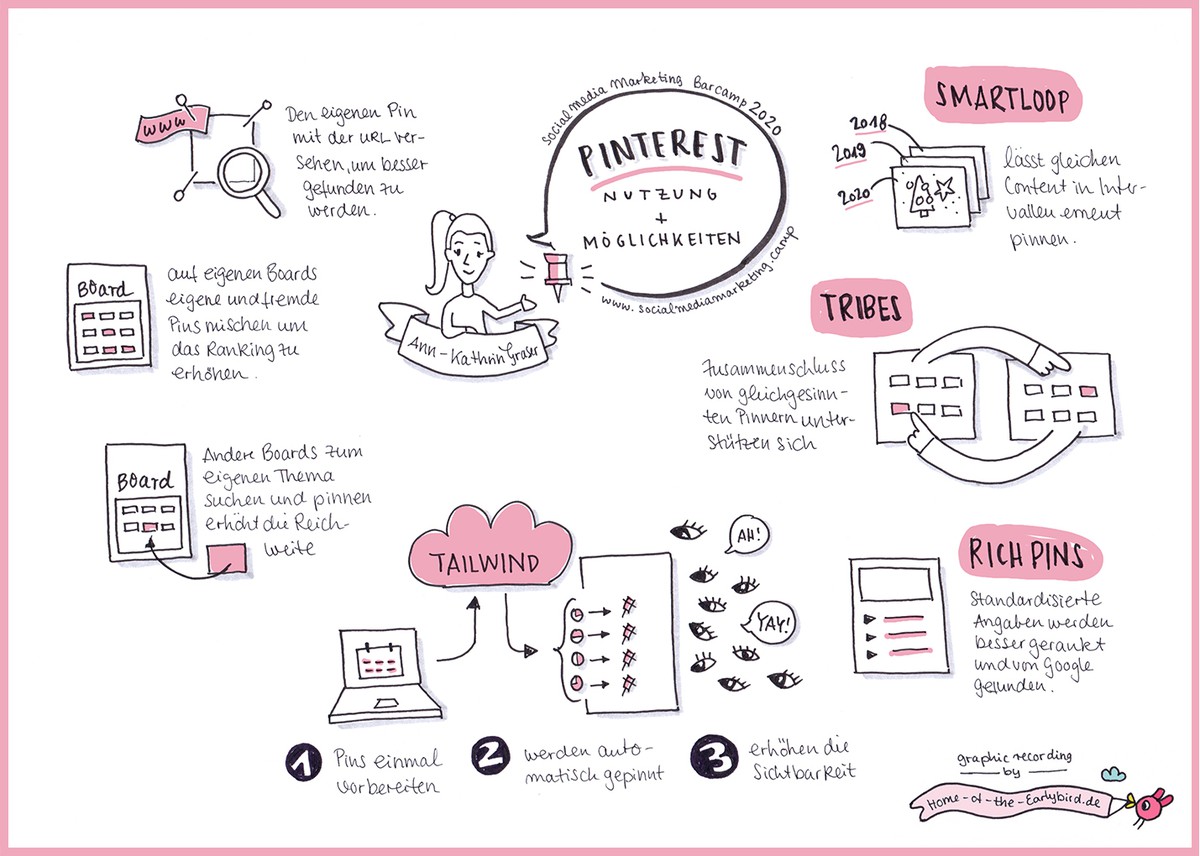 Social media Marketing Barcamp 2020
PINTEREST
NUTZUNG
+
MÖGLICHKEITEN
www.socialmediamarketing.camp
Ann-Kathrin Graser
www
Den eigenen Pin
mit der URL ver-
sehen, um besser
gefunden zu
werden.
Board
auf eigenen Boards
eigene und fremde
Pins mischen um
das Ranking zu
erhöhen.
Board
Andere Boards zum
eigenen Thema
suchen und pinnen
erhöht die Reich-
weite
SMARTLOOP
2018
2019
2020
lässt gleichen
Content in Inter-
vallen erneut
pinnen.
TRIBES
Zusammenschluss
von gleichgesinn-
ten Pinnern unter-
stützen sich
TAILWIND
AH!
YAY!
1 Pins einmal
vorbereiten
2 werden auto-
matisch gepinnt
3 erhöhen die
Sichtbarkeit
RICH PINS
Standardisierte
Angaben werden
besser gerankt
und von Google
gefunden.
graphic recording
by
Home-of-the-Earlybird.de